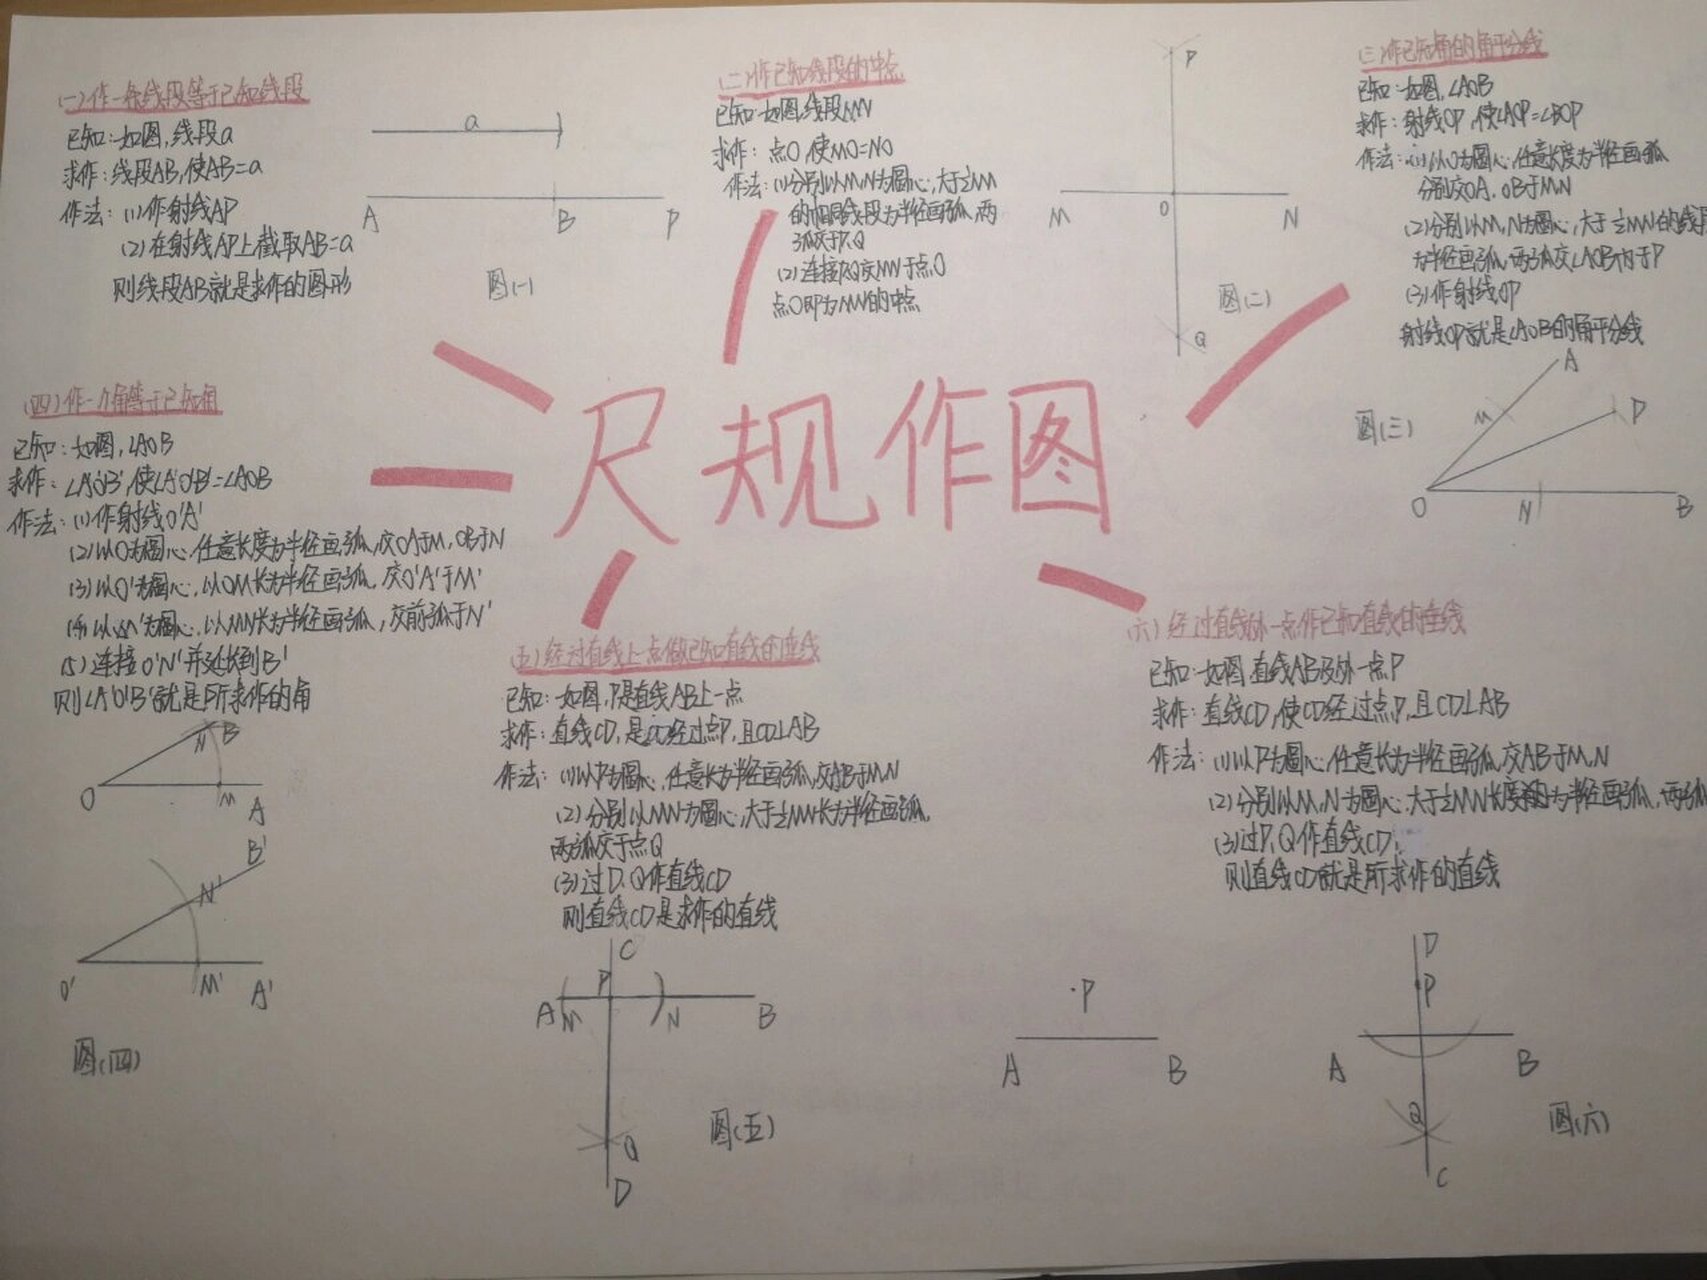 尺规作图
(一)作一条线段等于已知线段
已知:如图,线段a
求作:线段AB,使AB=a
作法:(1)作射线AP
(2)在射线AP上截取AB=a
则线段AB就是求作的图形
a
A B P
图(一)
(二)作已知线段的中点
已知:如图,线段MN
求作:点O,使MO=NO
作法:(1)分别以M,N为圆心,大于½MN
的相同线段为半径画弧,两
弧交于P,Q
(2)连接PQ交MN于点O
点O即为MN的中点
P
M O N
图(二)
Q
(三)作已知角的角平分线
已知:如图,∠AOB
求作:射线OP,使∠AOP=∠BOP
作法:(1)以O为圆心,任意长度为半径画弧
分别交OA,OB于M,N
(2)分别以M,N为圆心,大于½MN的线段
为半径画弧,两弧交∠AOB内于P
(3)作射线OP
射线OP就是∠AOB的角平分线
A
M P
图(三)
O N B
(四)作一个角等于已知角
已知:如图,∠AOB
求作:∠A'O'B',使∠A'O'B'=∠AOB
作法:(1)作射线O'A'
(2)以O为圆心,任意长度为半径画弧,交OA于M,OB于N
(3)以O'为圆心,以OM长为半径画弧,交O'A'于M'
(4)以M'为圆心,以MN长为半径画弧,交前弧于N'
(5)连接O'N'并延长到B'
则∠A'O'B'就是所求作的角
N B
O M A
B'
N'
O' M' A'
图(四)
(五)经过直线上一点做已知直线的垂线
已知:如图,P是直线AB上一点
求作:直线CD,是CD经过点P,且CD⊥AB
作法:(1)以P为圆心,任意长为半径画弧,交AB于M,N
(2)分别以MN为圆心,大于½MN长为半径画弧,
两弧交于点Q
(3)过D,Q作直线CD
则直线CD是求作的直线
C
P
A M N B
Q
D
图(五)
(六)经过直线外一点作已知直线的垂线
已知:如图,直线AB及外一点P
求作:直线CD,使CD经过点P,且CD⊥AB
作法:(1)以P为圆心,任意长为半径画弧,交AB于M,N
(2)分别以M,N为圆心,大于½MN长度为半径画弧,两弧
(3)过P,Q作直线CD
则直线CD就是所求作的直线
P
A B
D
P
A B
Q
C
图(六)